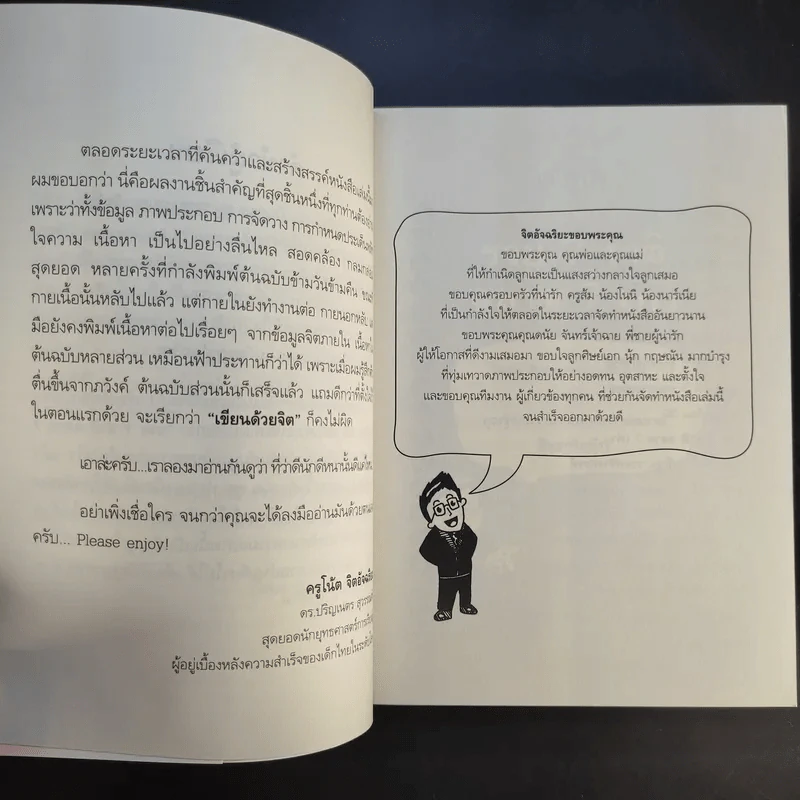 ตลอดระยะเวลาที่ค้นคว้าและสร้างสรรค์หนังสือเล่มนี้
ผมขอบอกว่า นี่คือผลงานชิ้นสำคัญที่สุดชิ้นหนึ่งที่ทุกท่าน
เพราะว่าทั้งข้อมูล ภาพประกอบ การจัดวาง การกำหนดประเด็น
ใจความ เนื้อหา เป็นไปอย่างลื่นไหล สอดคล้อง
สุดยอด หลายครั้งที่กำลังพิมพ์ต้นฉบับข้ามวันข้ามคืน
กายเนื้อนั้นหลับไปแล้ว แต่ภายในยังทำงานต่อ กายนอกหลับ
มือยังคงพิมพ์เนื้อหาต่อไปเรื่อยๆ จากข้อมูลจิตภายใน
ต้นฉบับหลายส่วน เหมือนฟ้าประทานก็ว่าได้ เพราะเมื่อผมรู้สึก
ตื่นขึ้นจากภวังค์ ต้นฉบับส่วนนั้นก็เสร็จแล้ว แถมดีกว่าที่ตั้งใจ
ในตอนแรกด้วย จะเรียกว่า “เขียนด้วยจิต” ก็คงไม่ผิด
เอาล่ะครับ...เราลองมาอ่านกันดูว่า ที่ว่าดีนักดีหนานั้น
อย่าเพิ่งเชื่อใคร จนกว่าคุณจะได้ลงมืออ่านมันด้วย
ครับ... Please enjoy!
ครูโน้ต จิตอัจฉริยะ
ดร.ปริญเนตร
สุดยอดนักยุทธศาสตร์
ผู้อยู่เบื้องหลังความสำเร็จของเด็กไทยในระดับ
จิตอัจฉริยะขอบพระคุณ
ขอบพระคุณ คุณพ่อและคุณแม่
ที่ให้กำเนิดลูกและเป็นแสงสว่างกลางใจลูกเสมอ
ขอบคุณครอบครัวที่น่ารัก ครูส้ม น้องโนนิ น้องนาร์เนีย
ที่เป็นกำลังใจให้ตลอดในระยะเวลาจัดทำหนังสืออันยาวนาน
ขอบพระคุณคุณดนัย จันทร์เจ้าฉาย พี่ชายผู้น่ารัก
ผู้ให้โอกาสที่ดีงามเสมอมา ขอบใจลูกศิษย์เอก นุ้ก กฤษณัน มากบำรุง
ที่ทุ่มเทวาดภาพประกอบให้อย่างอดทน อุตสาหะ และตั้งใจ
และขอบคุณทีมงาน ผู้เกี่ยวข้องทุกคน ที่ช่วยกันจัดทำหนังสือเล่มนี้
จนสำเร็จออกมาด้วยดี